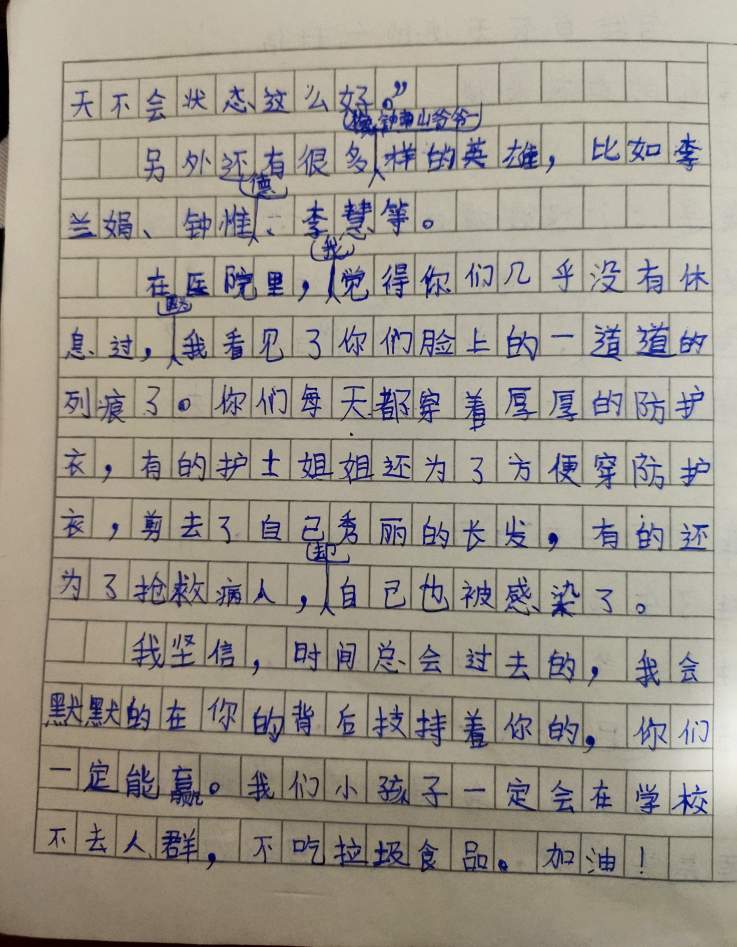 天不会状态这么好。”
像钟南山爷爷一
另外还有很多样的英雄，比如李
德
兰娟、钟惟、李慧等。
我
在医院里，觉得你们几乎没有休
息过，我看见了你们脸上的一道道的
列痕了。你们每天都穿着厚厚的防护
衣，有的护士姐姐还为了方便穿防护
衣，剪去了自己秀丽的长发，有的还
却
为了抢救病人，自己也被感染了。
我坚信，时间总会过去的，我会
默默的在你的背后技持着你的。你们
一定能赢。我们小孩子一定会在学校
不去人群，不吃拉圾食品。加油！